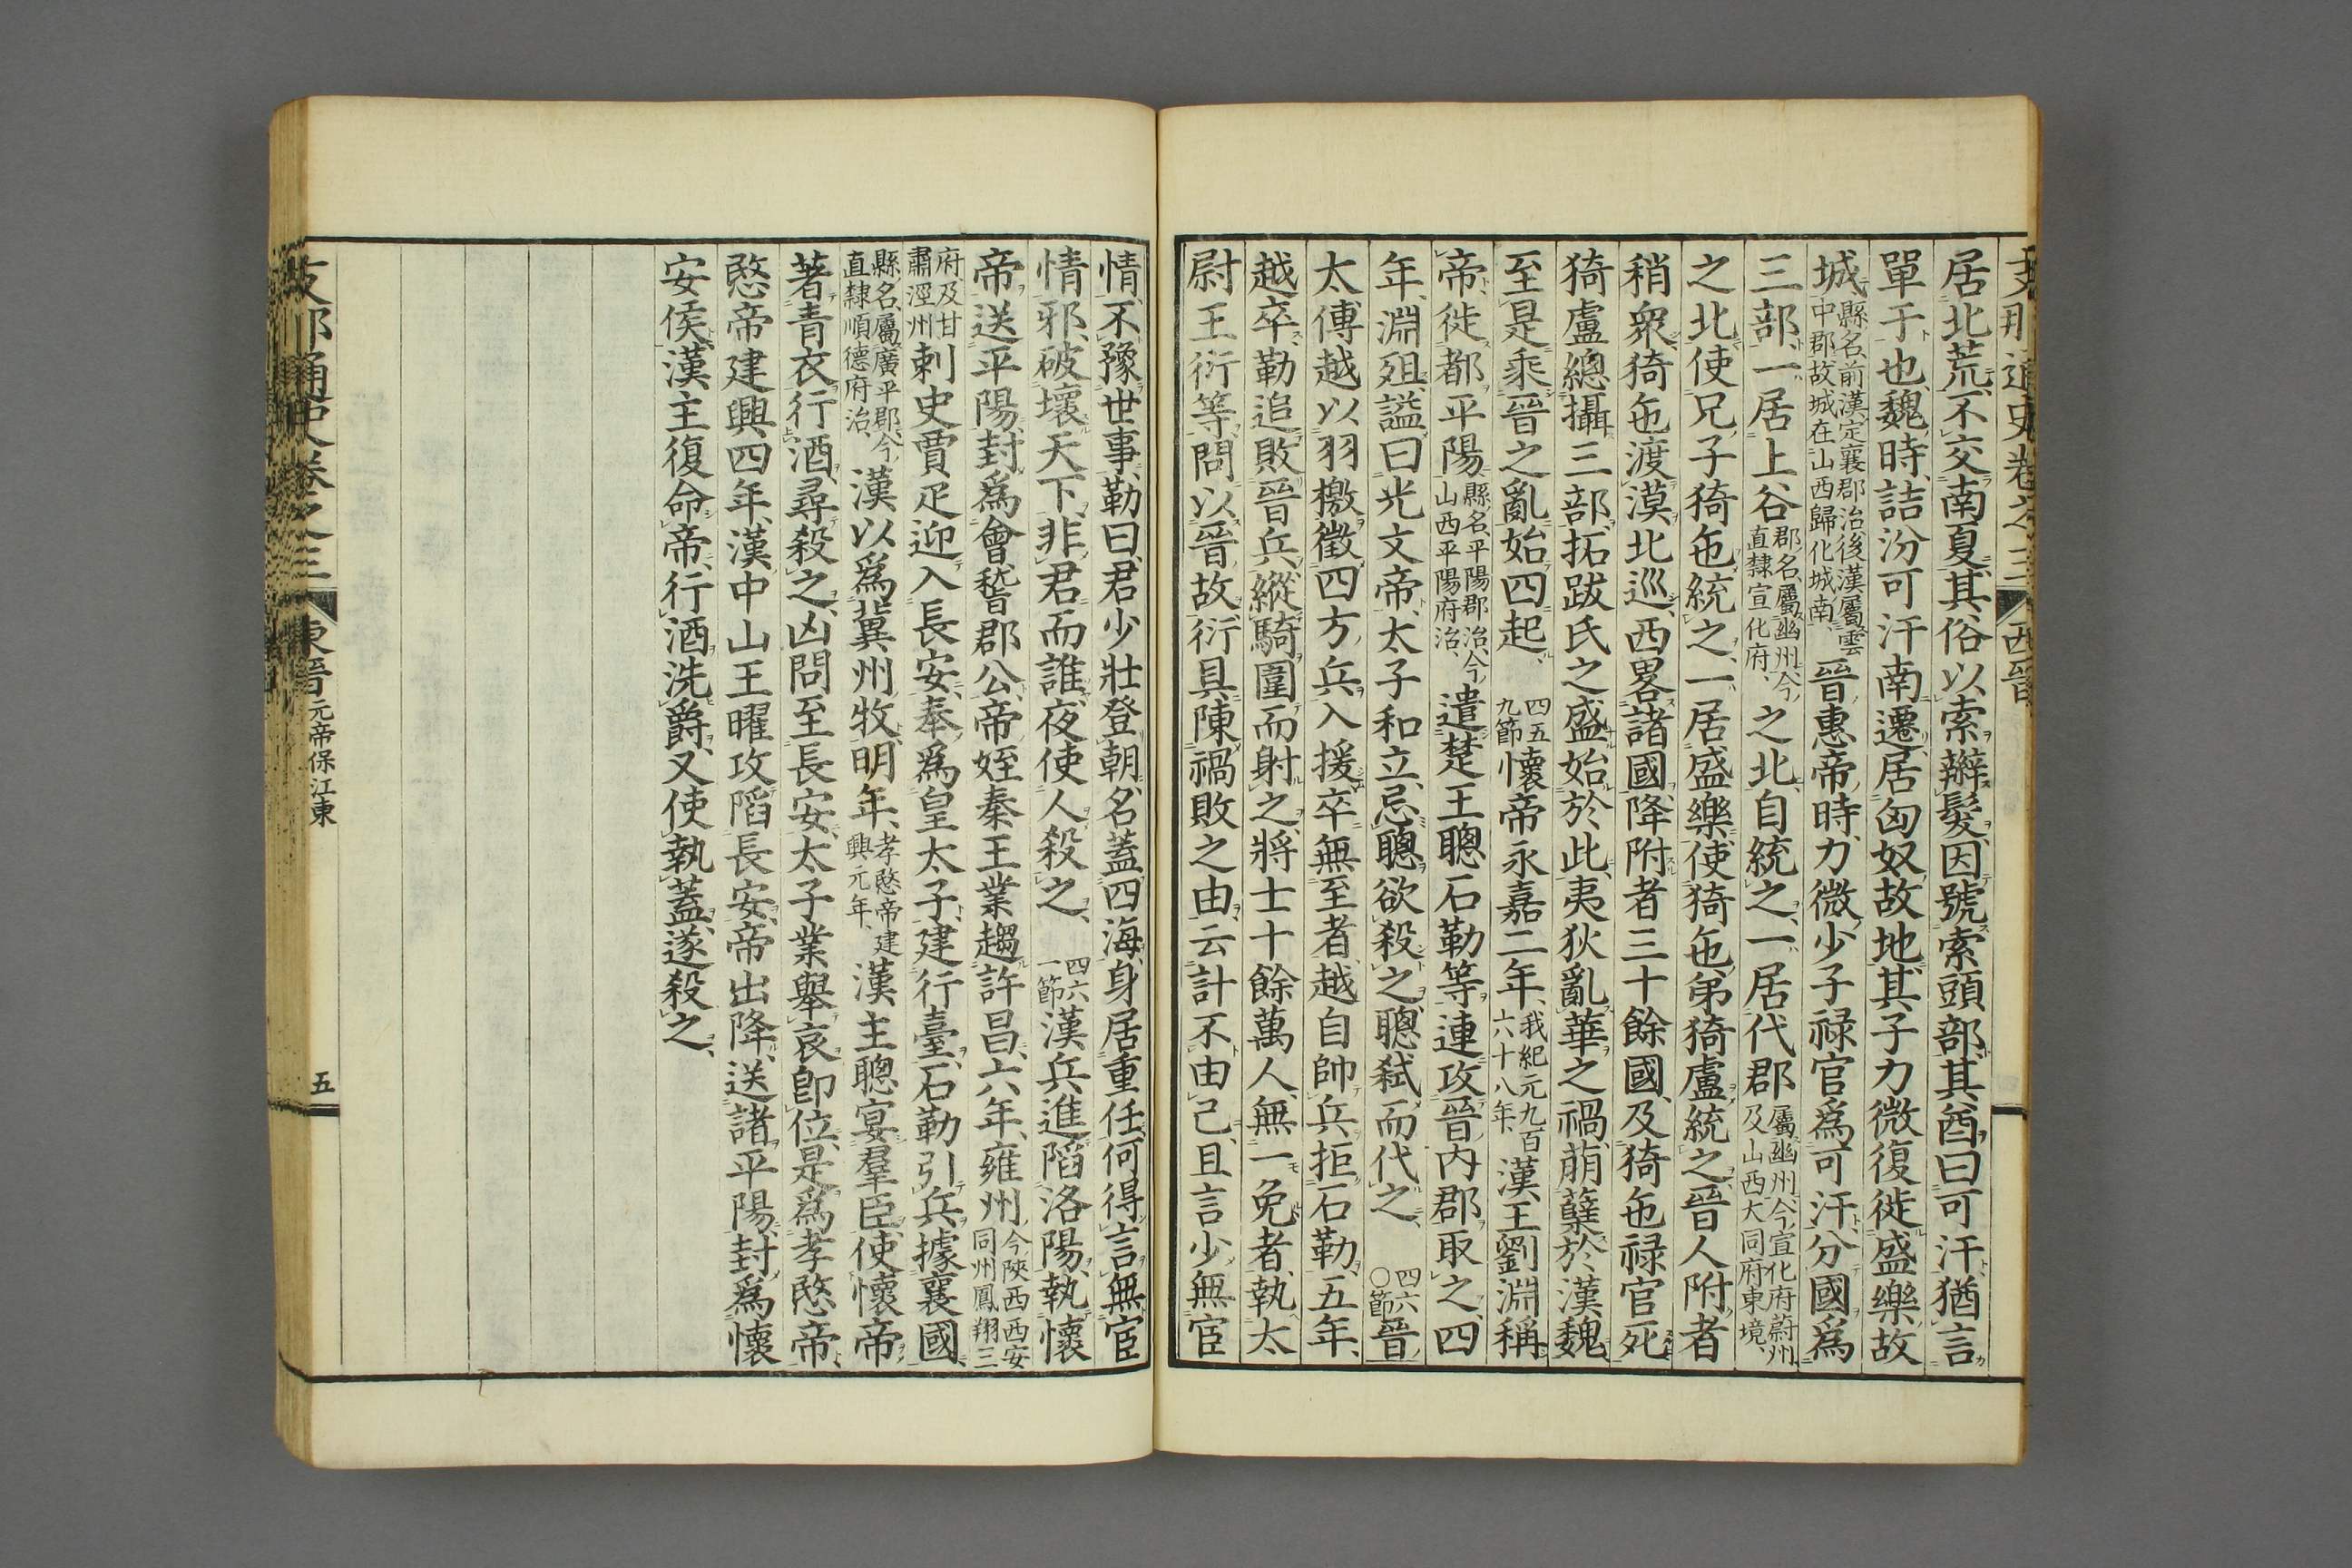 支那通史卷之三 西晉
居北荒、不交南夏、其俗以索辮髮、因號索頭部、其酋曰可汗、猶言
單于也、魏時、詰汾可汗南遷、居匈奴故地、其子力微復徙盛樂故
城、縣名、前漢、定襄郡治、後漢屬雲中郡、故城在山西歸化城南、晉惠帝時、力微少子祿官爲可汗、分國爲
三部、一居上谷郡名、屬幽州、今直隸宣化府、之北、自統之、一居代郡屬幽州、今宣化府蔚州、及山西大同府東境、
之北、使兄子猗㐌統之、一居盛樂、使猗㐌弟猗盧統之、晉人附者
稍衆、猗㐌渡漠北巡、西畧諸國、降附者三十餘國、及猗㐌祿官死、
猗盧總攝三部、拓跋氏之盛、始於此、夷狄亂華之禍、萠蘖於漢魏、
至是乘晉之亂、始四起、四五九節 懷帝永嘉二年、我紀元九百六十八年、漢王劉淵稱
帝、徙都平陽、縣名、平陽郡治、今山西平陽府治、遣楚王聰石勒等、連攻晉內郡取之、四
年、淵殂、謚曰光文帝、太子和立、忌聰欲殺之、聰弑而代之 四六〇節 晉
太傅越以羽檄徵四方兵入援、卒無至者、越自帥兵拒石勒、五年、
越卒、勒追敗晉兵、縱騎圍而射之、將士十餘萬人、無一免者、執太
尉王衍等、問以晉故、衍具陳禍敗之由、云計不由己、且言少無宦
情、不豫世事、勒曰、君少壯登朝、名蓋四海、身居重任、何得言無宦
情邪、破壞天下、非君而誰、夜使人殺之、四六一節 漢兵進陷洛陽、執懷
帝、送平陽、封爲會稽郡公、帝姪秦王業趨許昌、六年、雍州、今陝西西安同州鳳翔三
府及甘肅涇州刺史賈疋迎入長安、奉爲皇太子、建行臺、石勒引兵據襄國
縣名、屬廣平郡、今直隸順德府治、漢以爲冀州牧、明年、孝愍帝建興元年、漢主聰宴羣臣、使懷帝
著青衣行酒、尋殺之、凶問至長安、太子業舉哀卽位、是爲孝愍帝、
愍帝建興四年、漢中山王曜攻陷長安、帝出降、送諸平陽、封爲懷
安侯、漢主復命帝、行酒洗爵、又使執蓋、遂殺之、
支那通史卷之三 東晉 元帝保江東 五